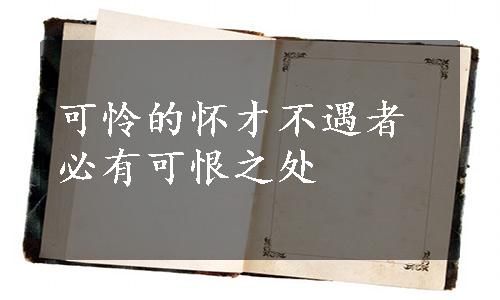 可怜的怀才不遇者
必有可恨之处